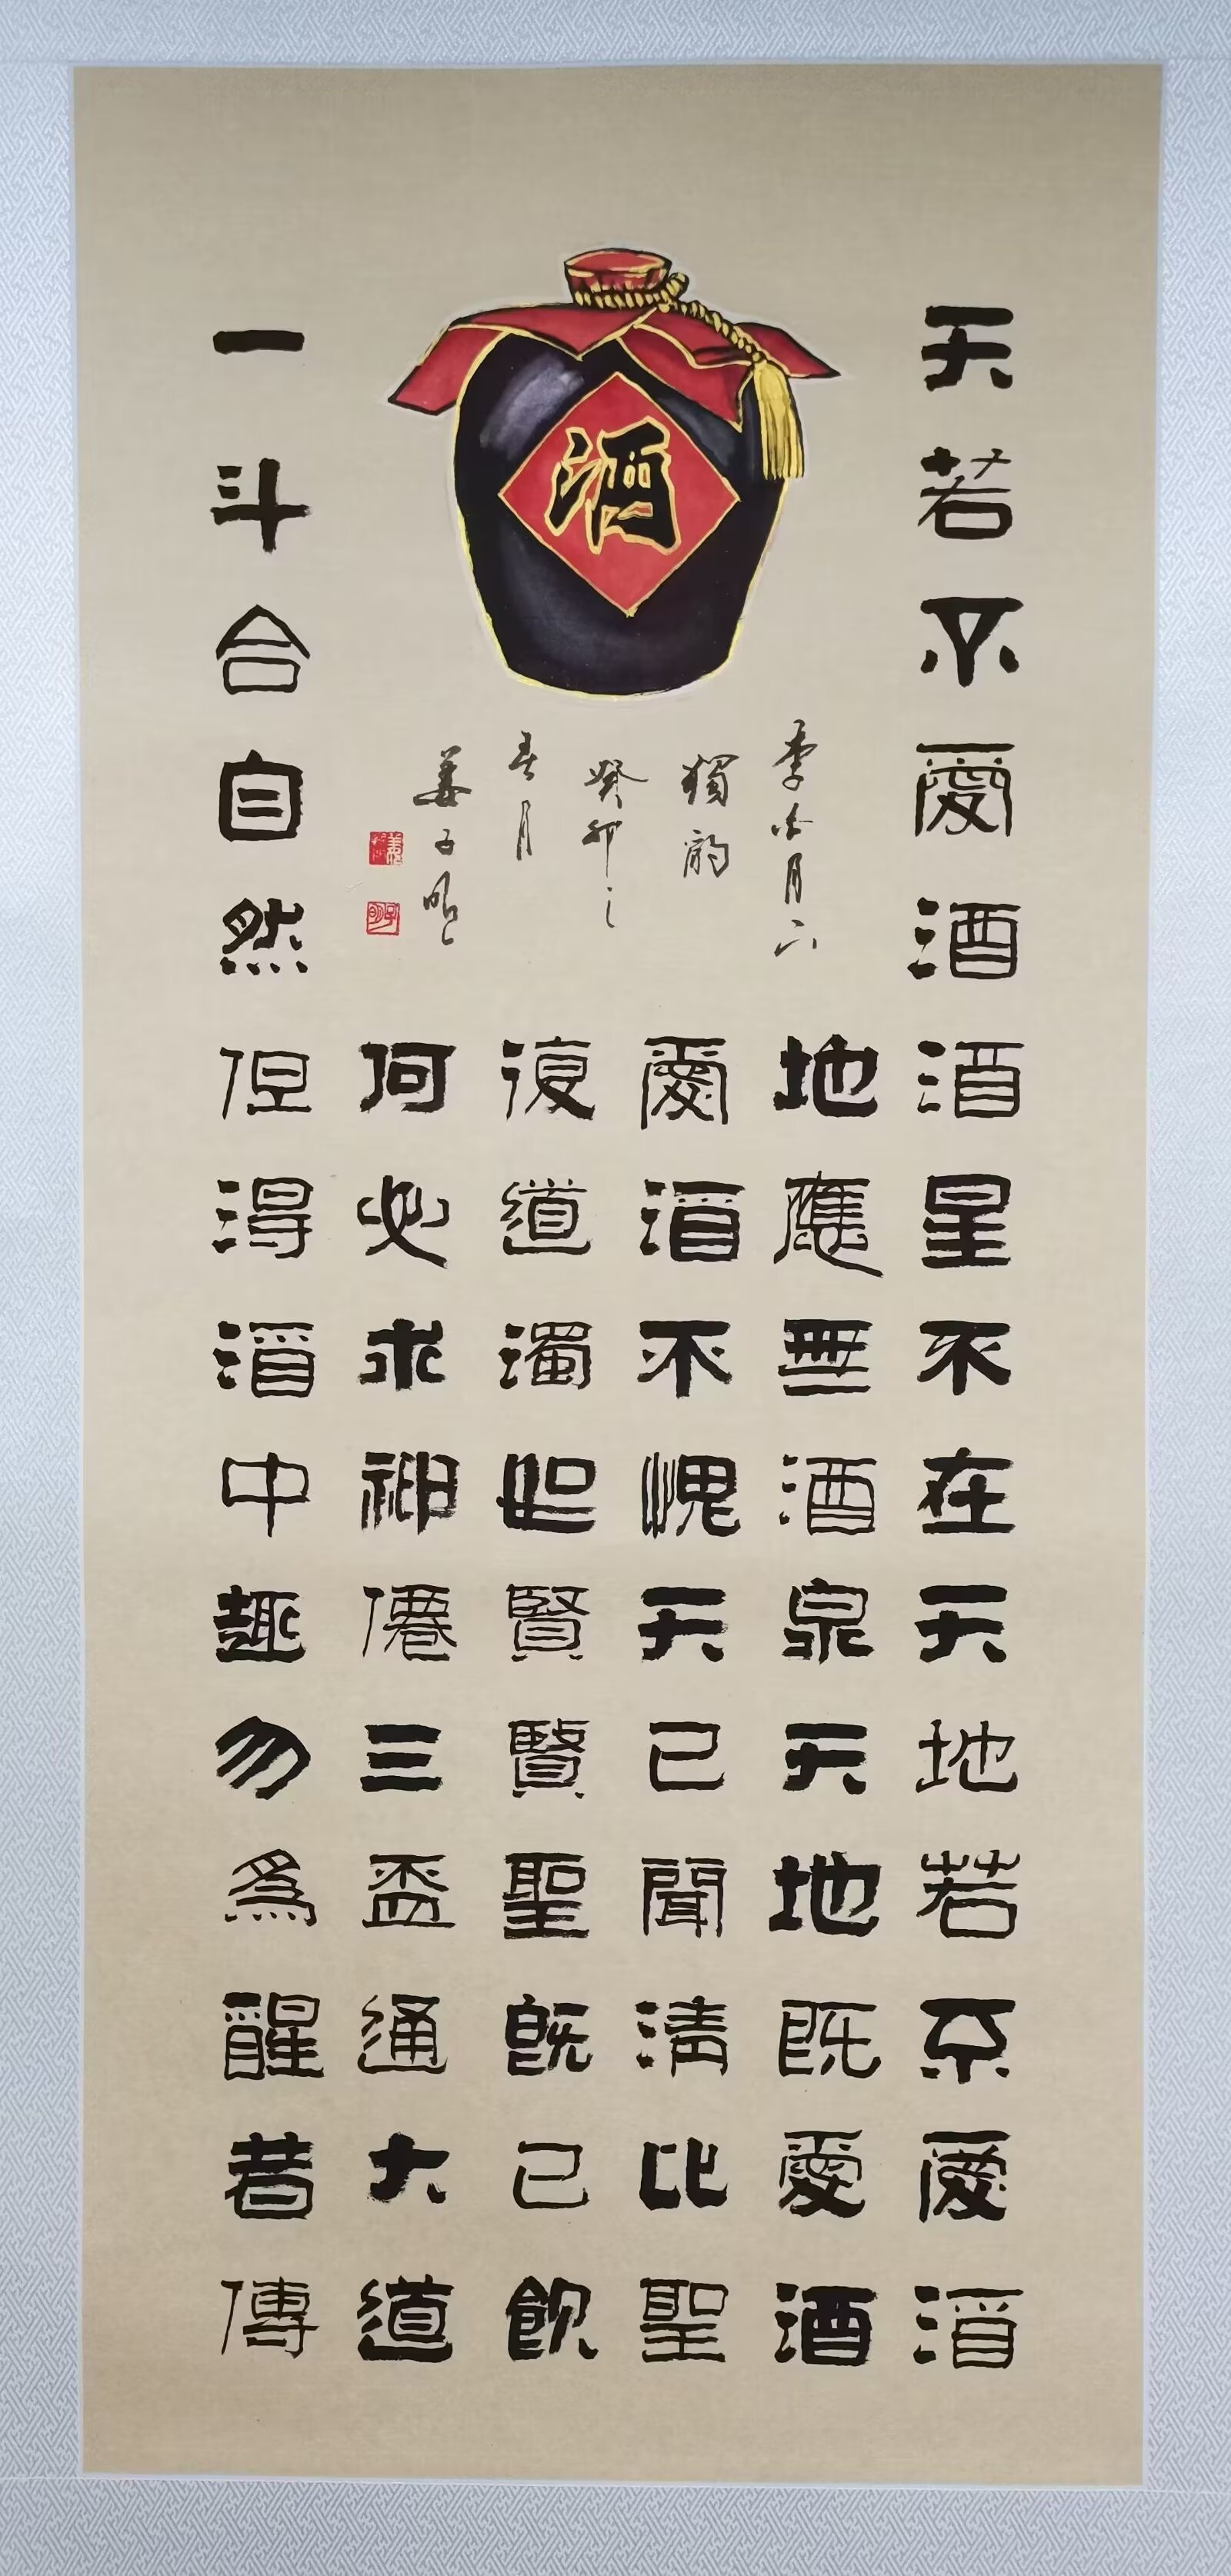 天若不愛酒酒星不在天地若不愛酒
酒
李白月下
獨酌
癸卯之
春月
姜子明
子明
地應無酒泉天地既愛酒
愛酒不愧天已聞清比聖
復道濁如賢賢聖既已飲
何必求神僊三盃通大道
一斗合自然但得酒中趣勿爲醒者傳